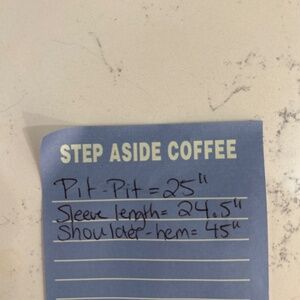 STEP ASIDE COFFEE
Pit-Pit = 25"
Sleeve length = 24.5"
Shoulder-hem = 45"